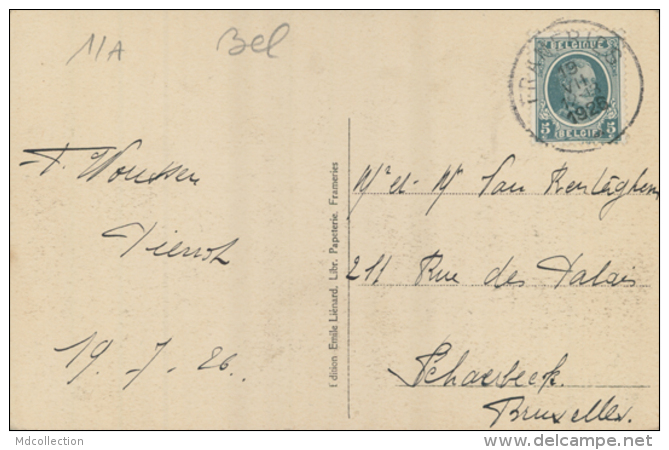 11/A
Bel
FRAMERIES
BELGIQUE
19
VII
1926
5 5
BELGIË
Pierrot
19-7-26.
Edition Emile Liénard, Libr. Papeterie, Frameries
Mr et Mr Van
211 Rue des Palais
Schaerbeek.
Bruxelles.
Mdcollection
www.delcampe.net